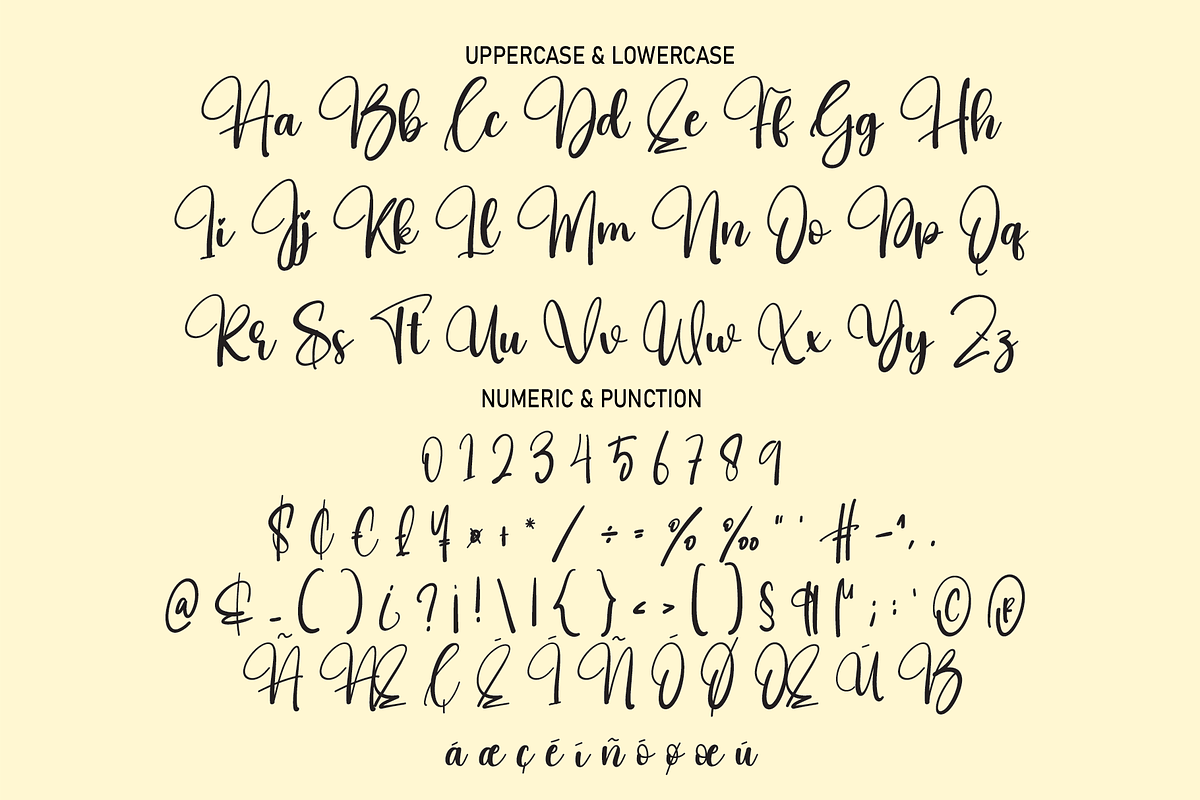 UPPERCASE & LOWERCASE
Aa Bb Cc Dd Ee Ff Gg Hh
Ii Jj Kk Ll Mm Nn Oo Pp Qq
Rr Ss Tt Uu Vv Ww Xx Yy Zz
NUMERIC & PUNCTION
0 1 2 3 4 5 6 7 8 9
$ ¢ € £ ¥ ¤ + * / ÷ = % ‰ " ' # - ^ , .
@ & _ ( ) ¿ ? ¡ ! \ | { } < > [ ] § ¶ µ ; : ' © ®
Ã Æ Ç É Í Ñ Ó Ø Œ Ú B
á æ ç é í ñ ó ø œ ú